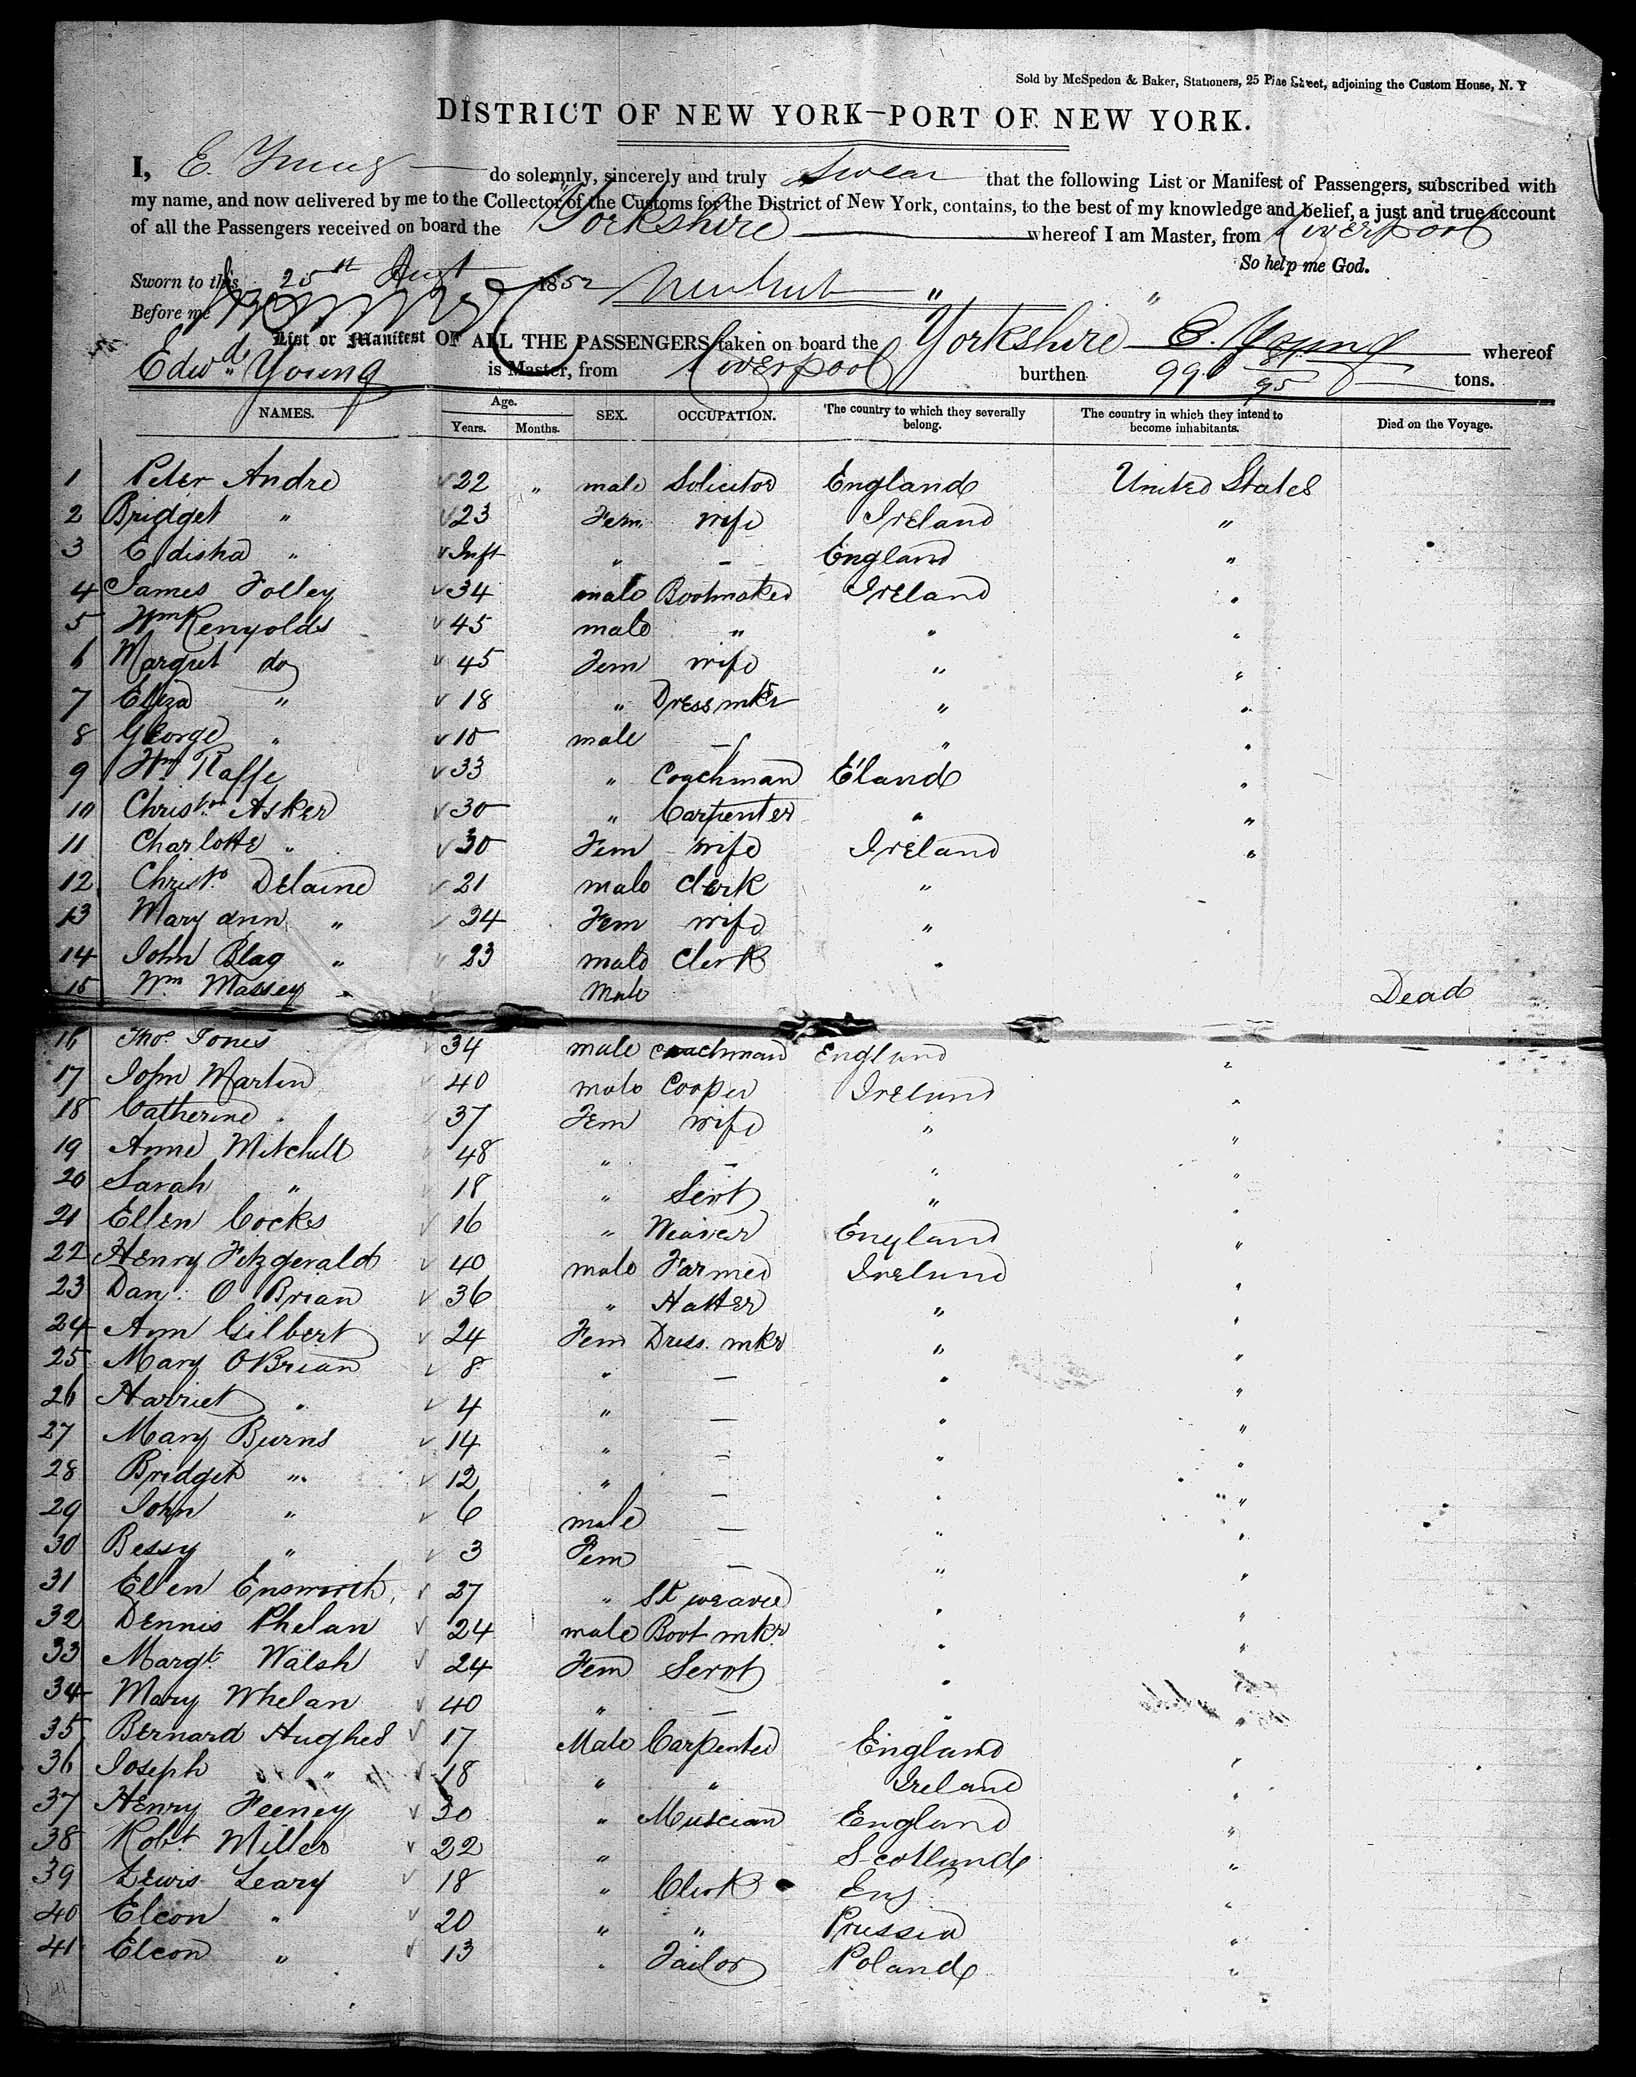 Sold by McSpedon & Baker, Stationers, 25 Pine Street, adjoining the Custom House, N. Y
DISTRICT OF NEW YORK—PORT OF NEW YORK.
I, E. Young do solemnly, sincerely and truly swear that the following List or Manifest of Passengers, subscribed with
my name, and now delivered by me to the Collector of the Customs for the District of New York, contains, to the best of my knowledge and belief, a just and true account
of all the Passengers received on board the "Yorkshire whereof I am Master, from Liverpool
So help me God.
Sworn to this 25th Augt 1852
Before me
List or Manifest OF ALL THE PASSENGERS taken on board the Yorkshire E. Young whereof
Edwd Young is Master, from Liverpool burthen 996 tons.
NAMES. Age. Years. Months. SEX. OCCUPATION. The country to which they severally belong. The country in which they intend to become inhabitants. Died on the Voyage.
1 Peter Andre 22 " male Solicitor England United States
2 Bridget " 23 Fem wife Ireland "
3 Edisha " Inft " — England "
4 James Folley 34 male Bootmaker Ireland "
5 Wm Renyolds 45 male " " "
6 Margret do 45 Fem wife " "
7 Eliza " 18 " Dress mkr " "
8 George " 10 male — " "
9 Wm Raffe 33 " Coachman E'land "
10 Christr Asker 30 " Carpenter " "
11 Charlotte " 30 Fem wife Ireland "
12 Christo Delaine 21 male Clerk "
13 Mary ann " 24 Fem wife "
14 John Blag " 23 male Clerk "
15 Wm Massey male Dead
16 Thos Jones 34 male coachman England "
17 John Martin 40 male Cooper Ireland "
18 Catherine " 37 Fem wife " "
19 Anne Mitchell 48 " — " "
20 Sarah " 18 " Servt " "
21 Ellen Cocks 16 " Weaver England "
22 Henry Fitzgerald 40 male Farmer Ireland "
23 Dan: O Brian 36 " Hatter " "
24 Ann Gilbert 24 Fem Dress. mkr " "
25 Mary O Brian 8 " — " "
26 Harriet " 4 " — " "
27 Mary Burns 14 " — " "
28 Bridget " 12 " — " "
29 John " 6 male — " "
30 Bessy " 3 Fem — " "
31 Ellen Ensworth 27 " St weaver " "
32 Dennis Phelan 24 male Boot mkr " "
33 Margt Walsh 24 Fem Servt " "
34 Mary Whelan 40 " — " "
35 Bernard Hughes 17 Male Carpenter England "
36 Joseph " 18 " " Ireland "
37 Henry Feeney 20 " Muscian England "
38 Robt Miller 22 " Scotland "
39 Lewis Leary 18 " Clerk Eng "
40 Elcon " 20 " " Prussia "
41 Elcon " 13 " Tailor Poland "